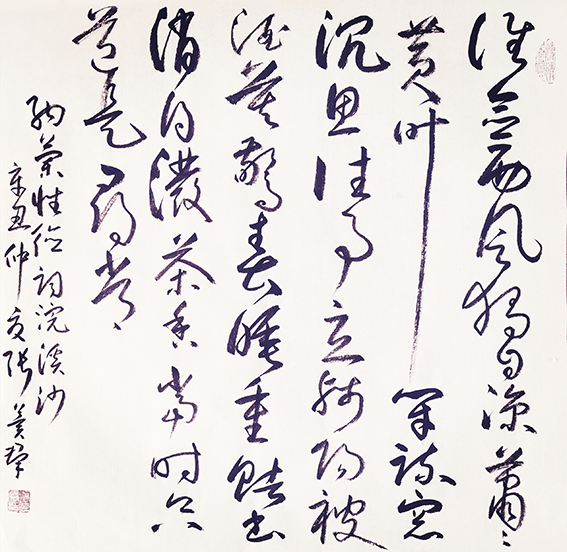 谁念西风独自凉萧〻
黄叶闭疏窗
沉思往事立残阳被
酒莫惊春睡重赌书
消得泼茶香当时只
道是寻常
纳兰性德词浣溪沙
辛丑仲夏张